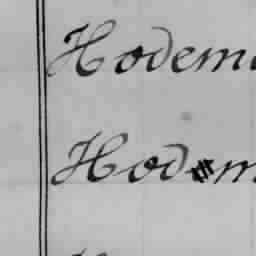 Hodem
Hodem